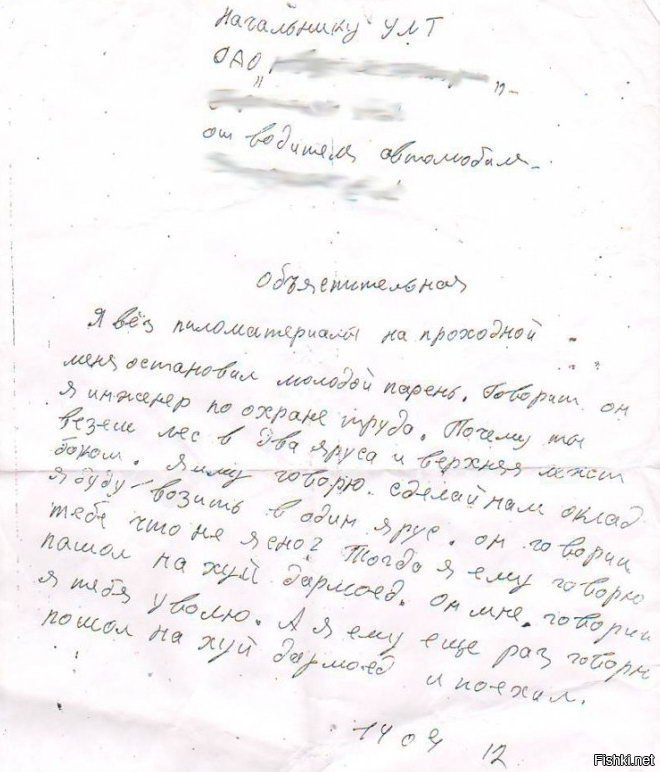 Начальнику УМТ
ОАО "
"-
от водителя автомобиля-
Объяснительная
Я вёз пиломатериалы на проходной
меня остановил молодой парень. Говорит он
я инженер по охране труда. Почему ты
везеш лес в два яруса и верхняя лежит
боком. Я иму говорю. сделай нам оклад
я буду возить в один ярус. он говорит
тебе что не ясно? Тогда я ему говорю
пашол на хуй дармоед. он мне. говорит
я тебя уволю. А я ему еще раз говорю
пошол на хуй дармоед и поехал.
14 04 12
Fishki.net